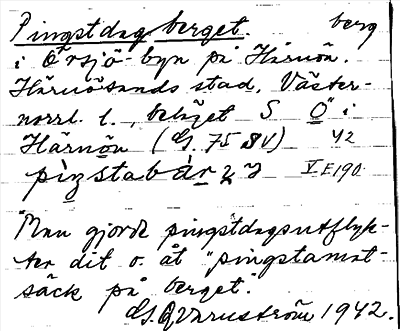 Pingstdagsberget. berg
i Örsjö-byn på Härnön.
Härnösands stad, Väster-
norrl. l., beläget S Ö i
Härnön (G. 75 SV) 42
V E 190
"Man gjorde pingstdagsutflyk-
ter dit o. åt "pingstamat-
säck på berget".
G. Q Varnström 1942.